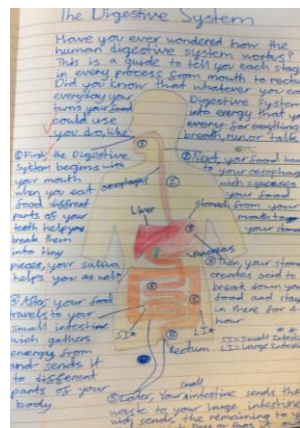 The Digestive System
Have you ever wondered how the
human digestive system works?
This is a guide to tell you each stage
in every process from mouth to rectum
Did you know that whatever you eat
everyday your
turns your food
could use
you do, like
Digestive system
into energy that you
energy for everything
breath, run or talk
① First, the Digestive
system begins with
your mouth
when you eat
food diffrent
parts of your
teeth help you
break them
into tiny
pieces, your saliva
helps you as well
oesophagus
② Next, your food
to your oesophagus
wich
your food
from your
mouth to
your
Liver
Pancreas
③ Then your
creates acid to
break down you
food and stay
in there for 4
hour
④ After, your food
travels to your
small intestine
wich gathers
energy from
and sends it
to different
parts of your
body
SI*
LI*
Rectum
SI = Small
LI = Large
⑤ Later, Your small intestine sends the
waste to your large intestine
wich sends the remaining to